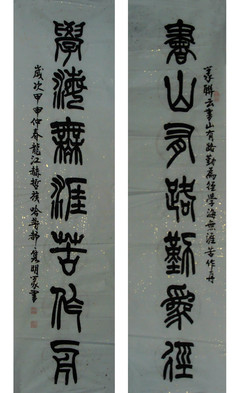 書山有路勤為徑
篆聯云書山有路勤為徑學海無涯苦作舟
學海無涯苦作舟
歲次甲申仲春龍江